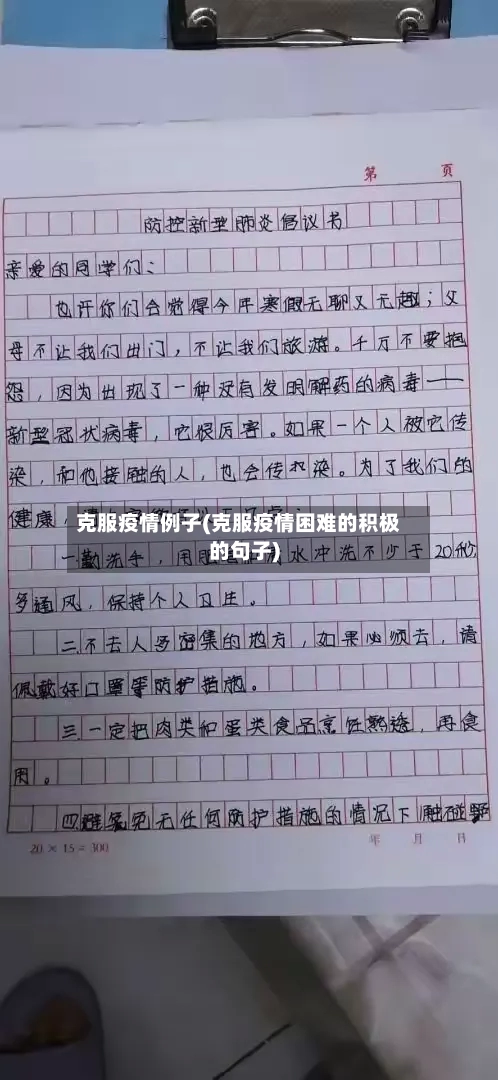 第 页
防控新型肺炎倡议书
亲爱的同学们：
也许你们会觉得今年寒假无聊又无趣；父
母不让我们出门，不让我们旅游。千万不要抱
怨，因为出现了一种没有发明解药的病毒——
新型冠状病毒，它很厉害。如果一个人被它传
染，和他接触的人，也会传染。为了我们的
健康，
克服疫情例子(克服疫情困难的积极
的句子)
一勤洗手，用 水冲洗不少于20秒
多通风，保持个人卫生。
二不去人多密集的地方，如果必须去，请
佩戴好口罩等防护措施。
三一定把肉类和蛋类食品烹饪熟透，再食
用。
四避免无任何防护措施的情况下触碰野
20×15=300 年 月 日